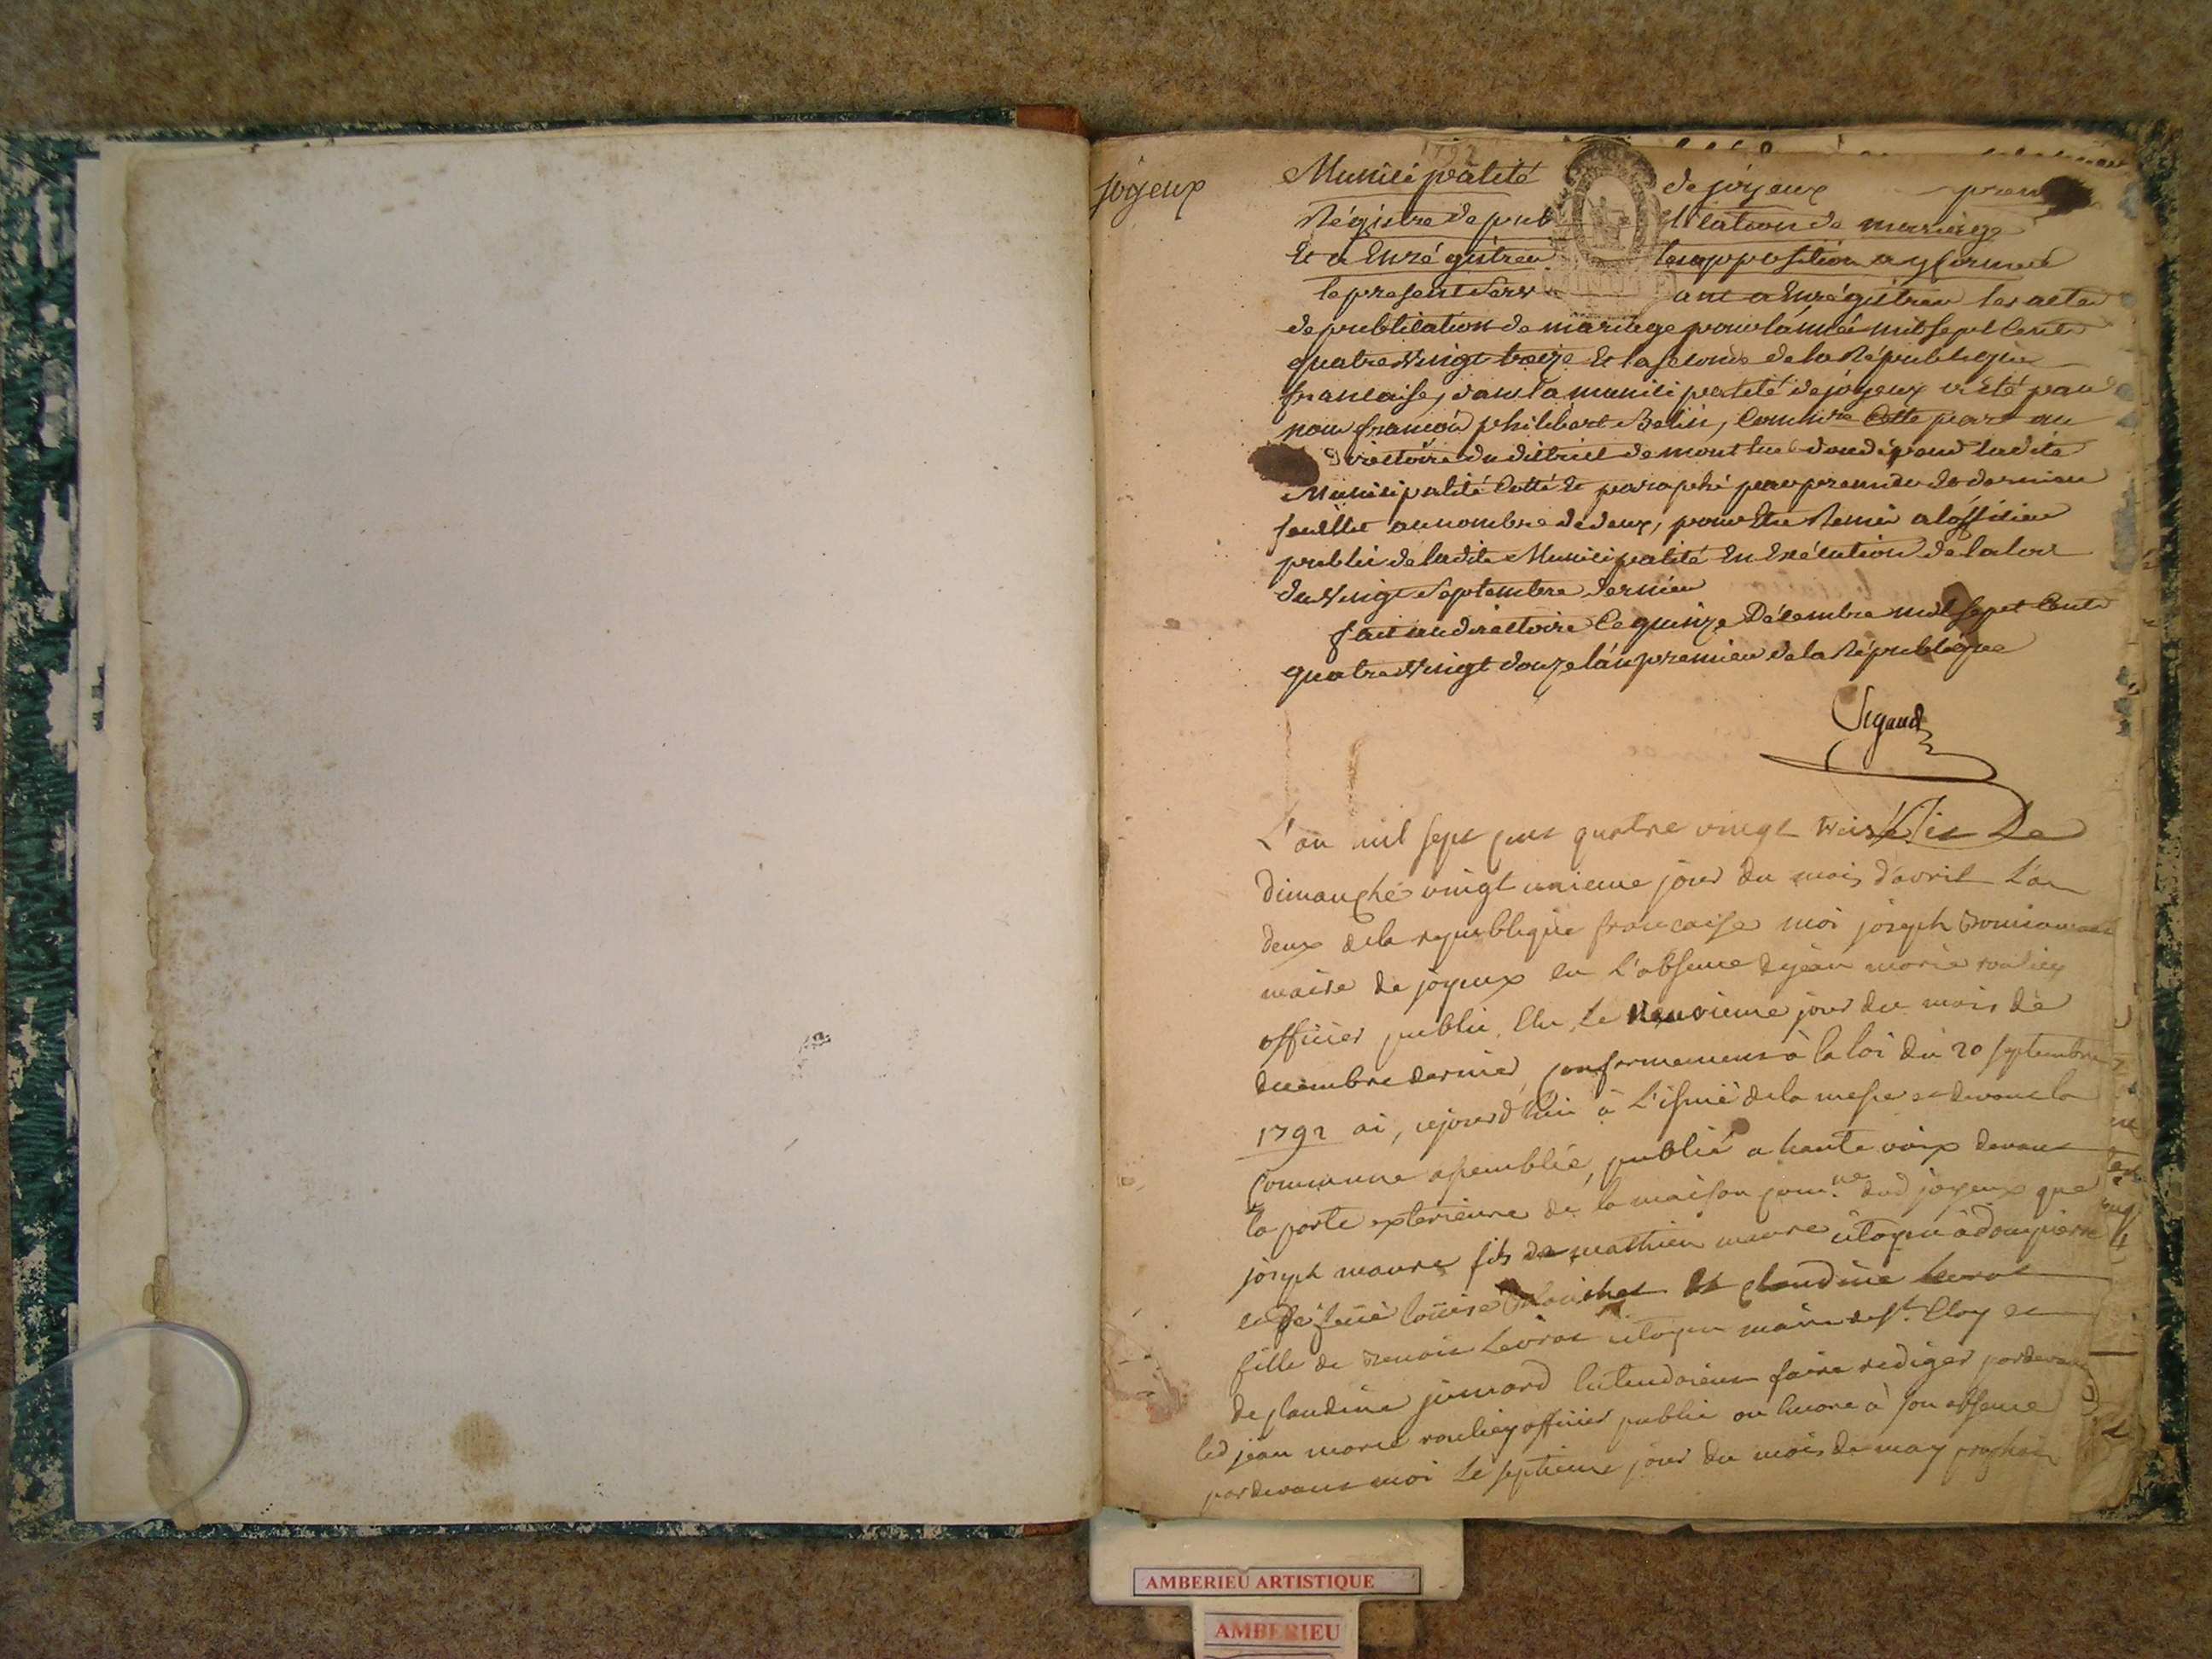 joyeux
1792
Municipalité de joyeux premier
Régistre de publication de mariage
Et a Enrégistrer les opposition a y former
le present servant a Enrégistrer les actes
de publication de mariage pour l'année mil sept Cents
quatre Vingt treize Et la seconde de la République
francaise, dans la municipalité de joyeux a été par
nous francois philibert Belin, Comm.re Cotte part au
Directoire du district de montluel dont dépend ladite
Municipalité Cotté Et paraphé par premier Et dernier
feuillet au nombre de deux, pour Etre Remis a lofficier
public de ladite Municipalité En Exécution de la loi
du Vingt Septembre dernier
fait au directoire Ce quinze Décembre mil sept Cents
quatre Vingt douze l'an premier de la République
Sigaud
L'an mil sept cent quatre vingt treize et Le
dimanche vingt unieme jour du mois d'avril L'an
deux de la republique francaise moi joseph
maire de joyeux en L'absence de jean marie
officier public Elu Le Neuvieme jour du mois de
decembre dernier, conformement à la loi du 20 septembre
1792 ai, cejourd'hui à L'issuë de la messe et devant la
Commune assemblée, publié a haute voix devant
la porte exterieure de la maison com.ne dud joyeux que
joseph maure fils de mathieu maure citoyen à dompierre
et de louise et claudine Levrat
fille de Benoit Levrat citoyen maire de S.t Eloy et
de claudine jumard Entendoient faire rediger pardevant
led jean marie officier public ou Encore à son absence
pardevant moi Le septieme jour du mois de may prochain
AMBERIEU ARTISTIQUE
AMBERIEU